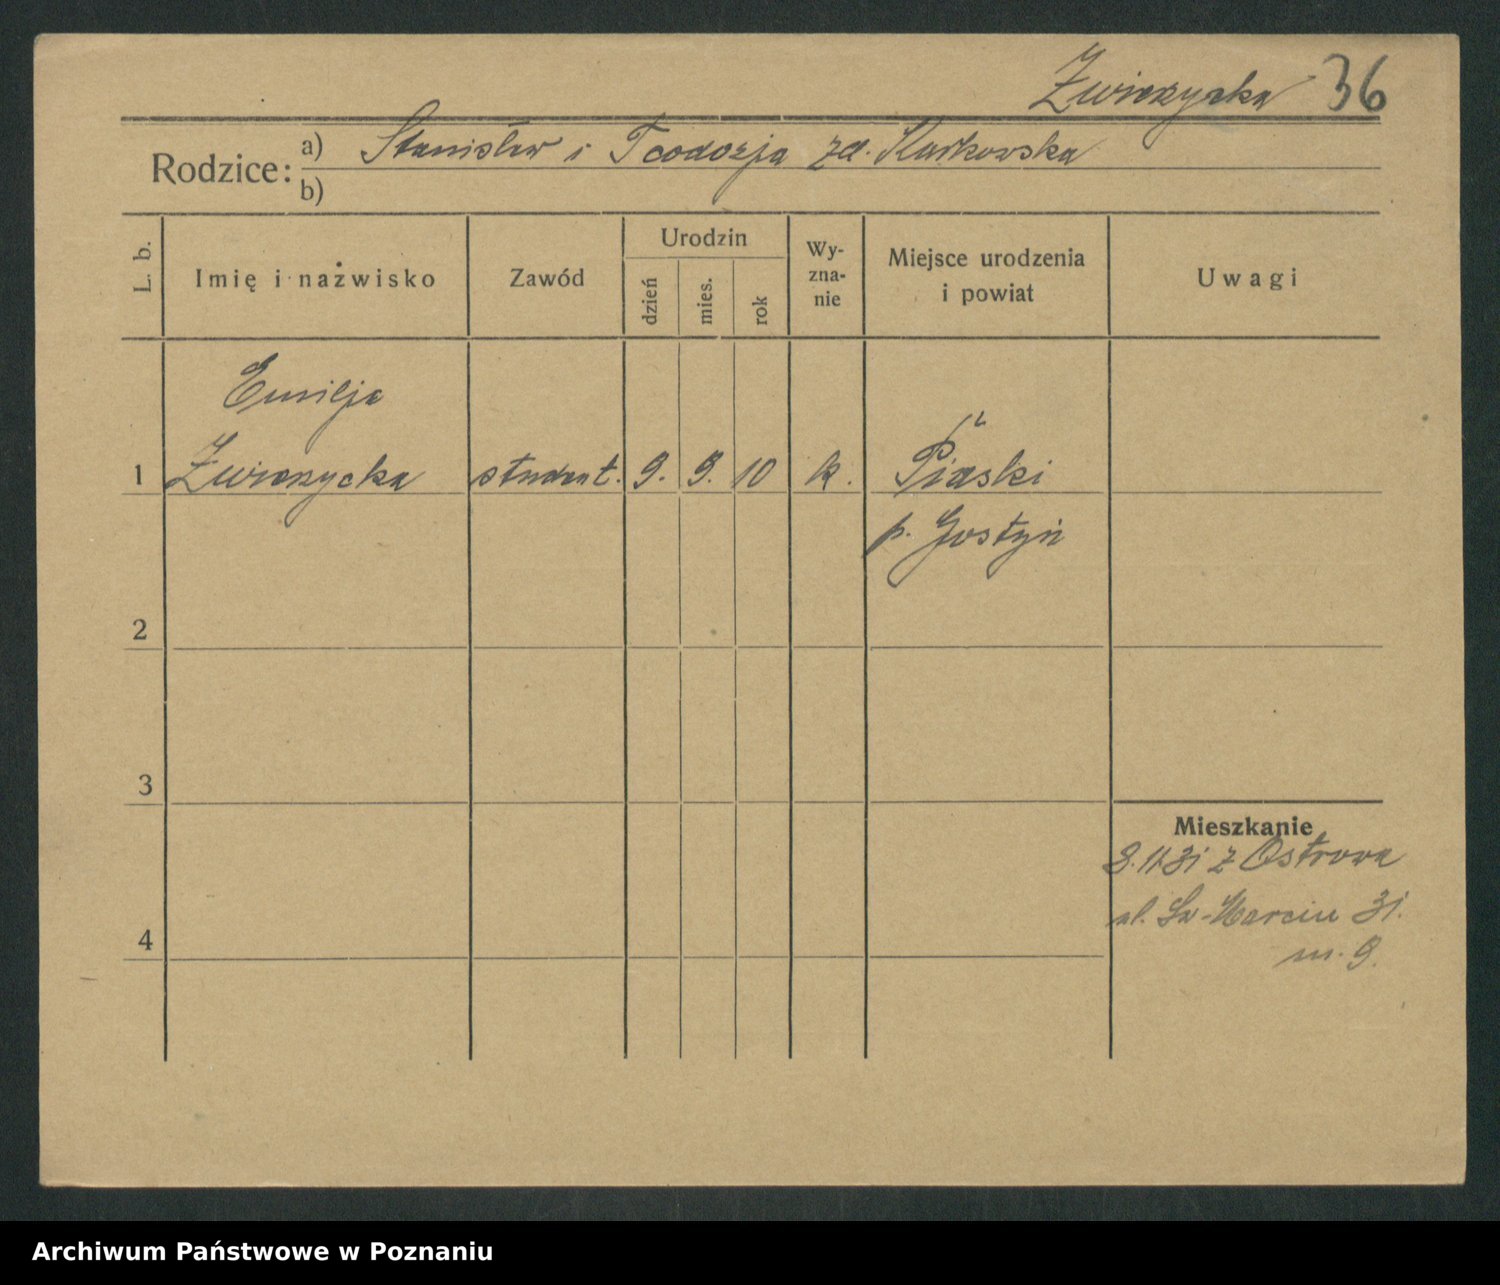 Zwierzycka 36
Rodzice: a) Stanisław i Teodozja zd. Karkowska
b)
L. b.
Imię i nazwisko
Zawód
Urodzin
dzień
mies.
rok
Wy-
zna-
nie
Miejsce urodzenia
i powiat
Uwagi
Emilja
1 Zwierzycka student. 9. 9. 10 k. Piaski
p. Gostyń
2
3
Mieszkanie
z Ostrowa
ul. Św-Marcin 31.
4
m. 9.
Archiwum Państwowe w Poznaniu